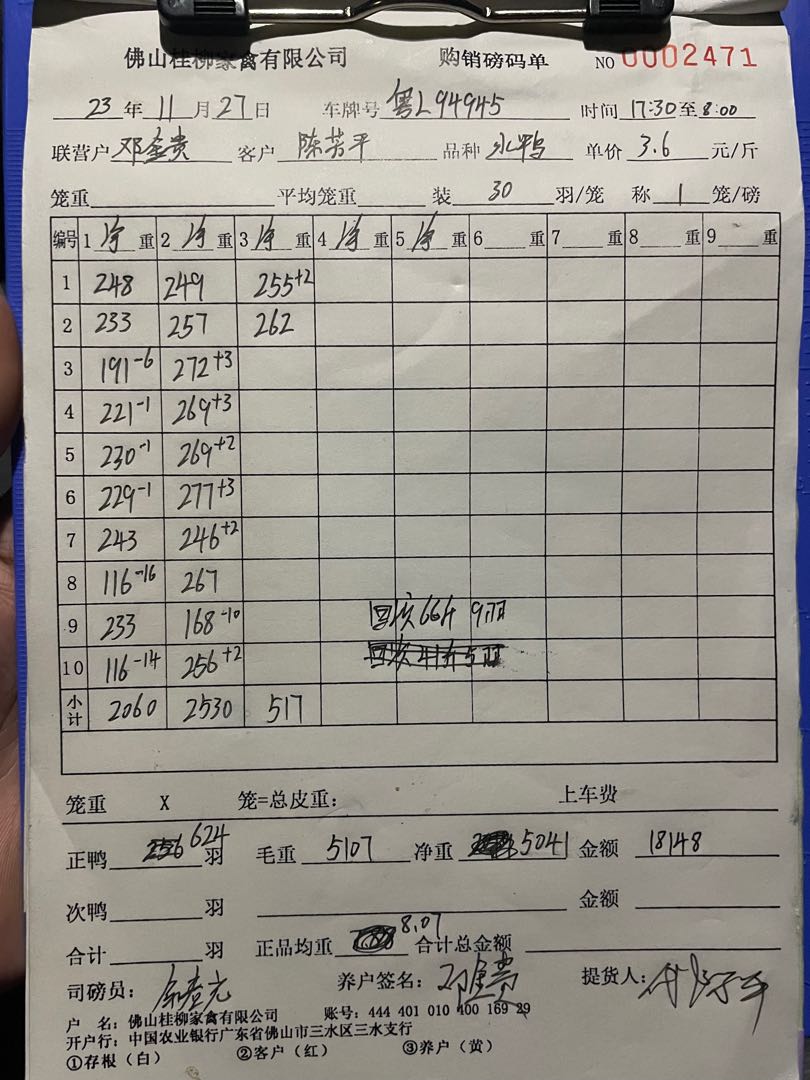 佛山桂柳家禽有限公司 购销磅码单 NO 0002471
23 年 11 月 27 日 车牌号 粤L94945 时间 17:30 至 8:00
联营户 邓金贵 客户 陈芳平 品种 水鸭 单价 3.6 元/斤
笼重 平均笼重 装 30 羽/笼 称 1 笼/磅
编号 1 净 重 2 净 重 3 净 重 4 净 重 5 净 重 6 重 7 重 8 重 9 重
1 248 249 255+2
2 233 257 262
3 191-6 272+3
4 221-1 269+3
5 230-1 269+2
6 229-1 277+3
7 243 246+2
8 116-16 267
9 233 168-10 回灰66斤 9羽
10 116-14 256+2
小计 2060 2530 517
笼重 X 笼=总皮重: 上车费
正鸭 624 羽 毛重 5107 净重 5041 金额 18148
次鸭 羽 金额
合计 羽 正品均重 8.07 合计总金额
司磅员: 养户签名: 邓金贵 提货人:
户 名: 佛山桂柳家禽有限公司 账号: 444 401 010 400 169 29
开户行: 中国农业银行广东省佛山市三水区三水支行
①存根(白) ②客户(红) ③养户(黄)